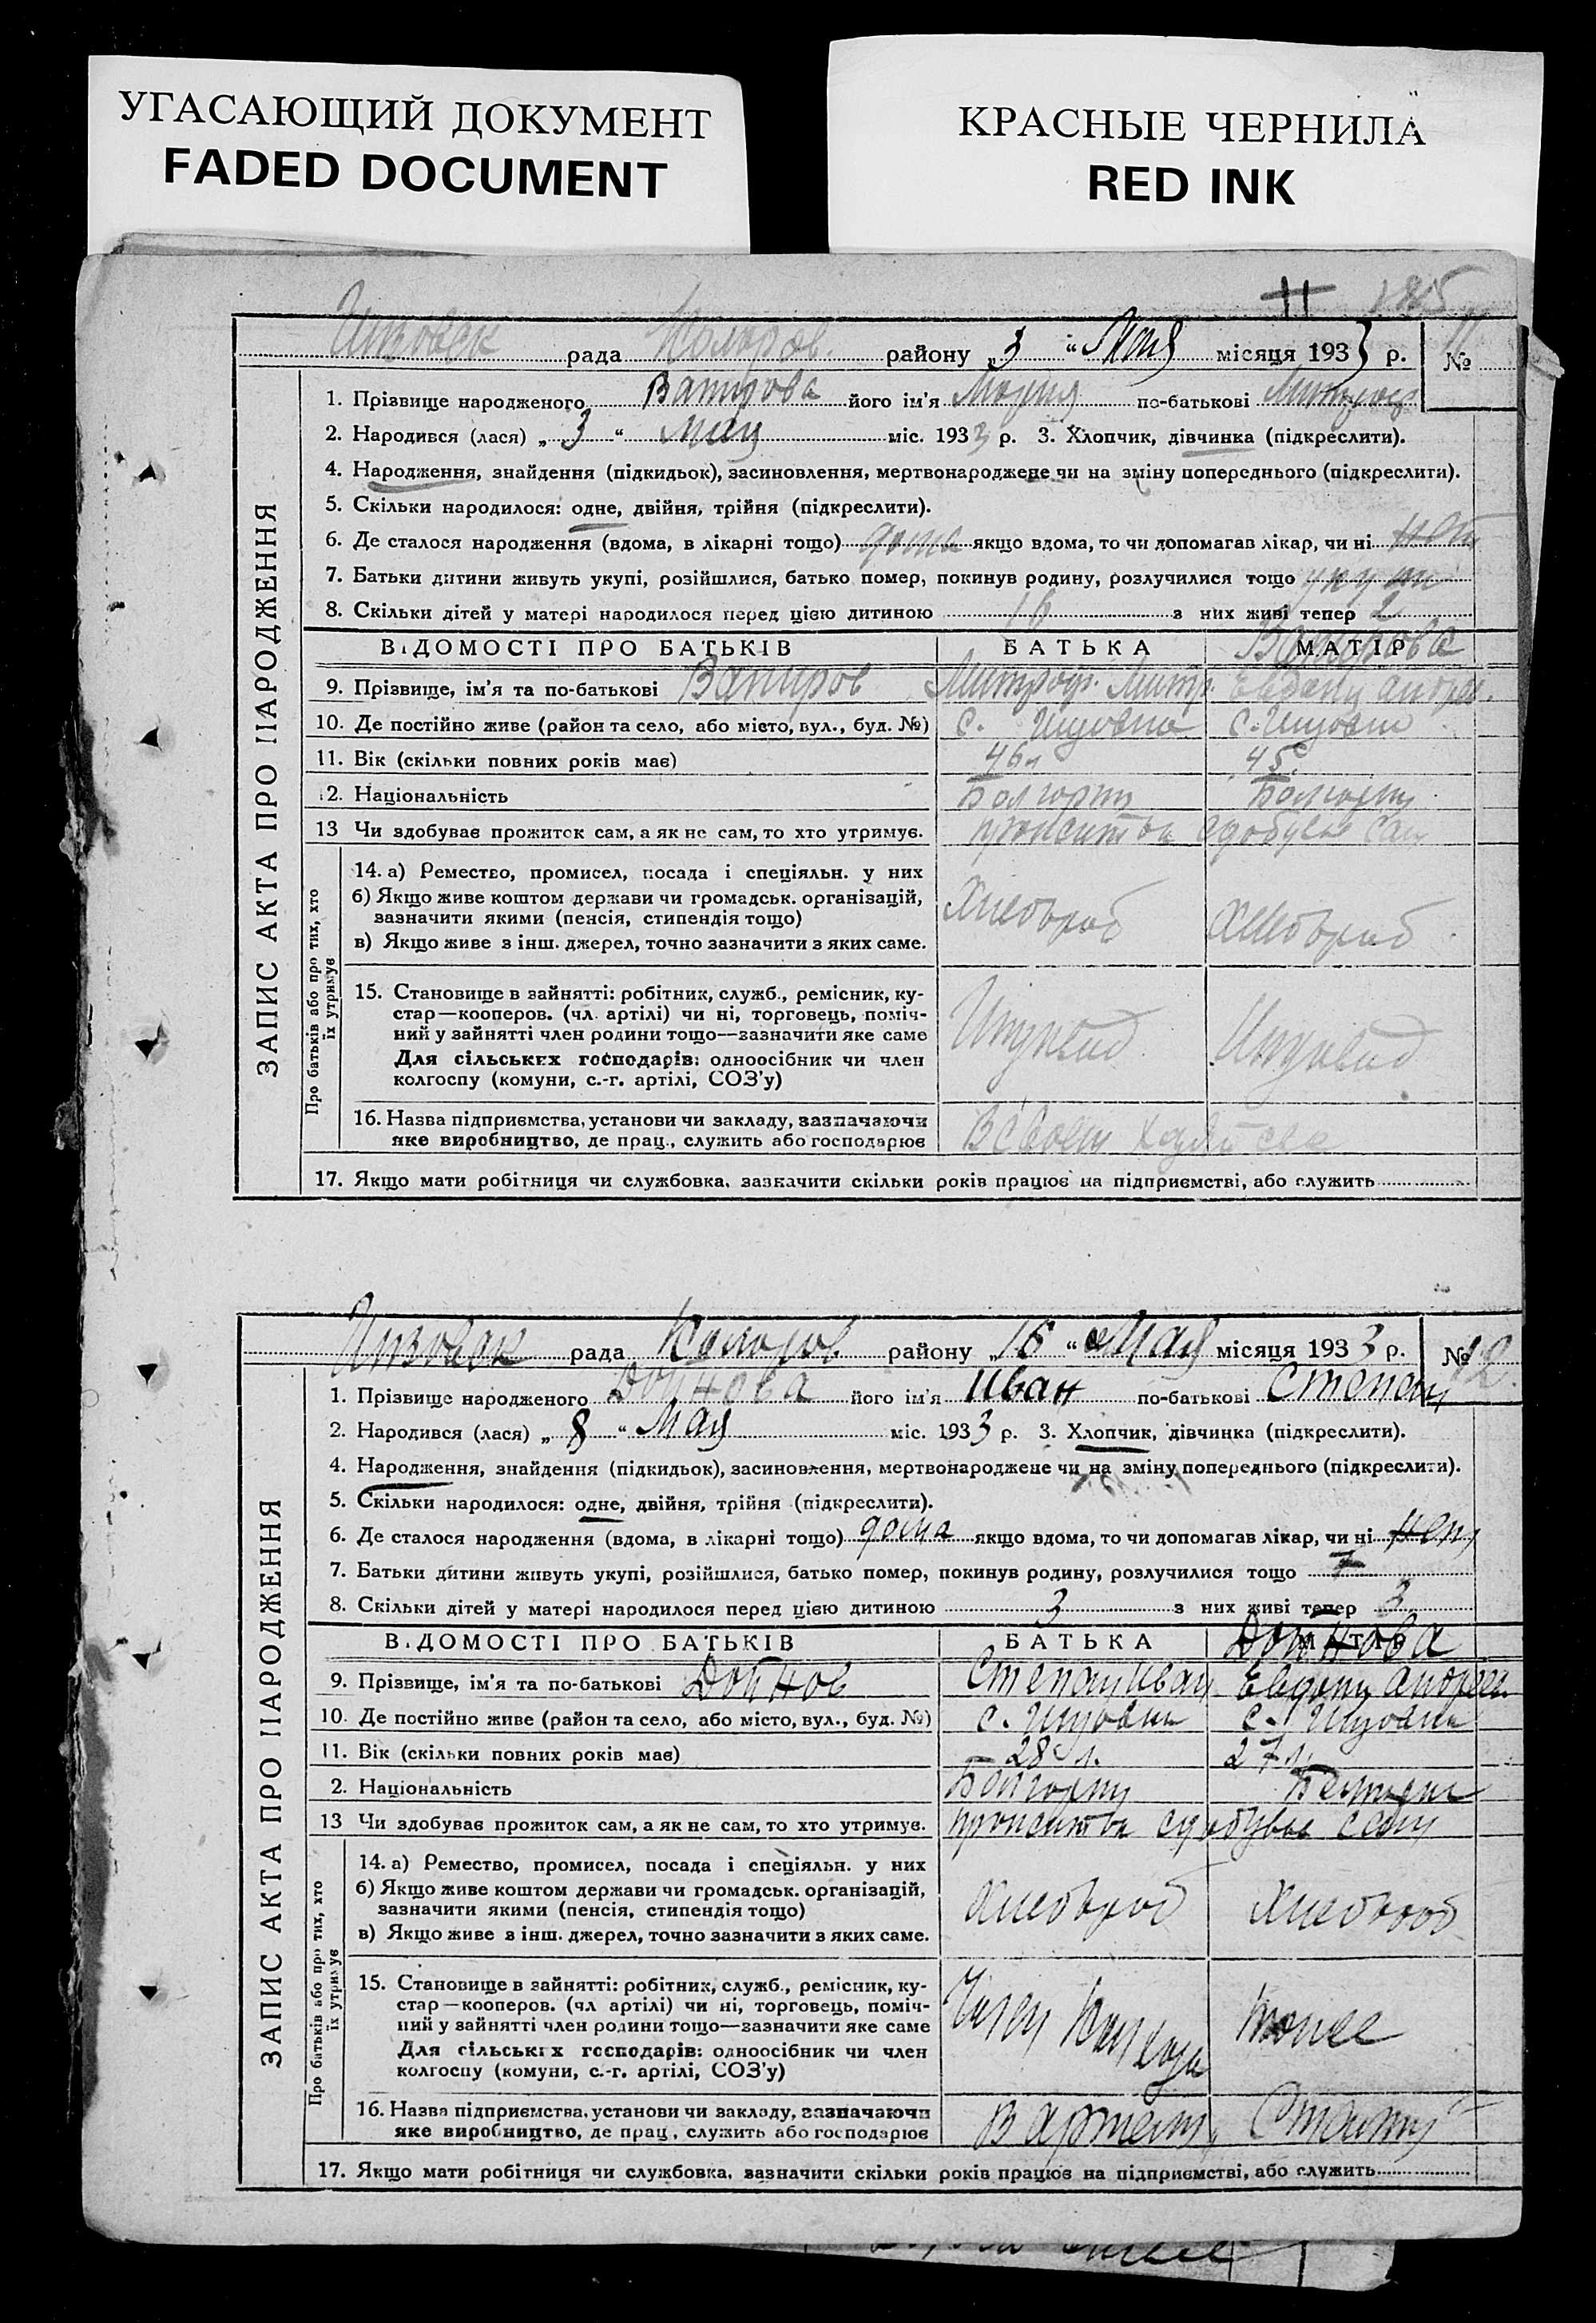 УГАСАЮЩИЙ ДОКУМЕНТ
FADED DOCUMENT
КРАСНЫЕ ЧЕРНИЛА
RED INK
11
рада Коларов. району „3 “ Мая місяця 1933 р. № 11
ЗАПИС АКТА ПРО НАРОДЖЕННЯ
1. Прізвище народженого Ватрова його ім'я Мария по-батькові Митроф
2. Народився (лася) „ 3 “ Мая міс. 1933 р. 3. Хлопчик, дівчинка (підкреслити).
4. Народження, знайдення (підкидьок), засиновлення, мертвонароджене чи на зміну попереднього (підкреслити).
5. Скільки народилося: одне, двійня, трійня (підкреслити).
6. Де сталося народження (вдома, в лікарні тощо) дома якщо вдома, то чи допомагав лікар, чи ні нет
7. Батьки дитини живуть укупі, розійшлися, батько помер, покинув родину, розлучилися тощо
8. Скільки дітей у матері народилося перед цією дитиною з них живі тепер 2
ВІДОМОСТІ ПРО БАТЬКІВ БАТЬКА МАТІР
9. Прізвище, ім'я та по-батькові Митроф. Митр. Евдоки Андрее.
10. Де постійно живе (район та село, або місто, вул., буд. №) с. с.
11. Вік (скільки повних років має) 46 л 45
12. Національність Болгарин Болгарин
13 Чи здобуває прожиток сам, а як не сам, то хто утримує. прожиток здобуває сам
Про батьків або про тих, хто їх утримує
14. а) Ремество, промисел, посада і спеціяльн. у них
б) Якщо живе коштом держави чи громадськ. організацій,
зазначити якими (пенсія, стипендія тощо) Хлебороб Хлебороб
в) Якщо живе з інш. джерел, точно зазначити з яких саме.
15. Становище в зайнятті: робітник, служб., ремісник, ку-
стар—кооперов. (чл. артілі) чи ні, торговець, поміч-
ний у зайнятті член родини тощо—зазначити яке саме
Для сільських господарів: одноосібник чи член
колгоспу (комуни, с.-г. артілі, СОЗ'у)
16. Назва підприємства, установи чи закладу, зазначаючи
яке виробництво, де прац., служить або господарює В своем
17. Якщо мати робітниця чи службовка, зазначити скільки років працює на підприємстві, або служить
рада Коларов. району „16 “ Мая місяця 1933 р. № 12
ЗАПИС АКТА ПРО НАРОДЖЕННЯ
1. Прізвище народженого Дойнова його ім'я Иван по-батькові Степан
2. Народився (лася) „ 8 “ Мая міс. 1933 р. 3. Хлопчик, дівчинка (підкреслити).
4. Народження, знайдення (підкидьок), засиновлення, мертвонароджене чи на зміну попереднього (підкреслити).
5. Скільки народилося: одне, двійня, трійня (підкреслити).
6. Де сталося народження (вдома, в лікарні тощо) дома якщо вдома, то чи допомагав лікар, чи ні нет
7. Батьки дитини живуть укупі, розійшлися, батько помер, покинув родину, розлучилися тощо
8. Скільки дітей у матері народилося перед цією дитиною 3 з них живі тепер 3
ВІДОМОСТІ ПРО БАТЬКІВ БАТЬКА МАТІР Дойнова
9. Прізвище, ім'я та по-батькові Дойнов Степан Иван Евдоки Андрее.
10. Де постійно живе (район та село, або місто, вул., буд. №) с. с.
11. Вік (скільки повних років має) 28 л. 27 л.
2. Національність Болгарин Болгарин
13 Чи здобуває прожиток сам, а як не сам, то хто утримує. прожиток здобуває сам
Про батьків або про тих, хто їх утримує
14. а) Ремество, промисел, посада і спеціяльн. у них
б) Якщо живе коштом держави чи громадськ. організацій,
зазначити якими (пенсія, стипендія тощо) Хлебороб Хлебороб
в) Якщо живе з інш. джерел, точно зазначити з яких саме.
15. Становище в зайнятті: робітник, служб., ремісник, ку-
стар—кооперов. (чл артілі) чи ні, торговець, поміч-
ний у зайнятті член родини тощо—зазначити яке саме Член тоже
Для сільських господарів: одноосібник чи член
колгоспу (комуни, с.-г. артілі, СОЗ'у)
16. Назва підприємства, установи чи закладу, зазначаючи
яке виробництво, де прац., служить або господарює В Артели
17. Якщо мати робітниця чи службовка, зазначити скільки років працює на підприємстві, або служить